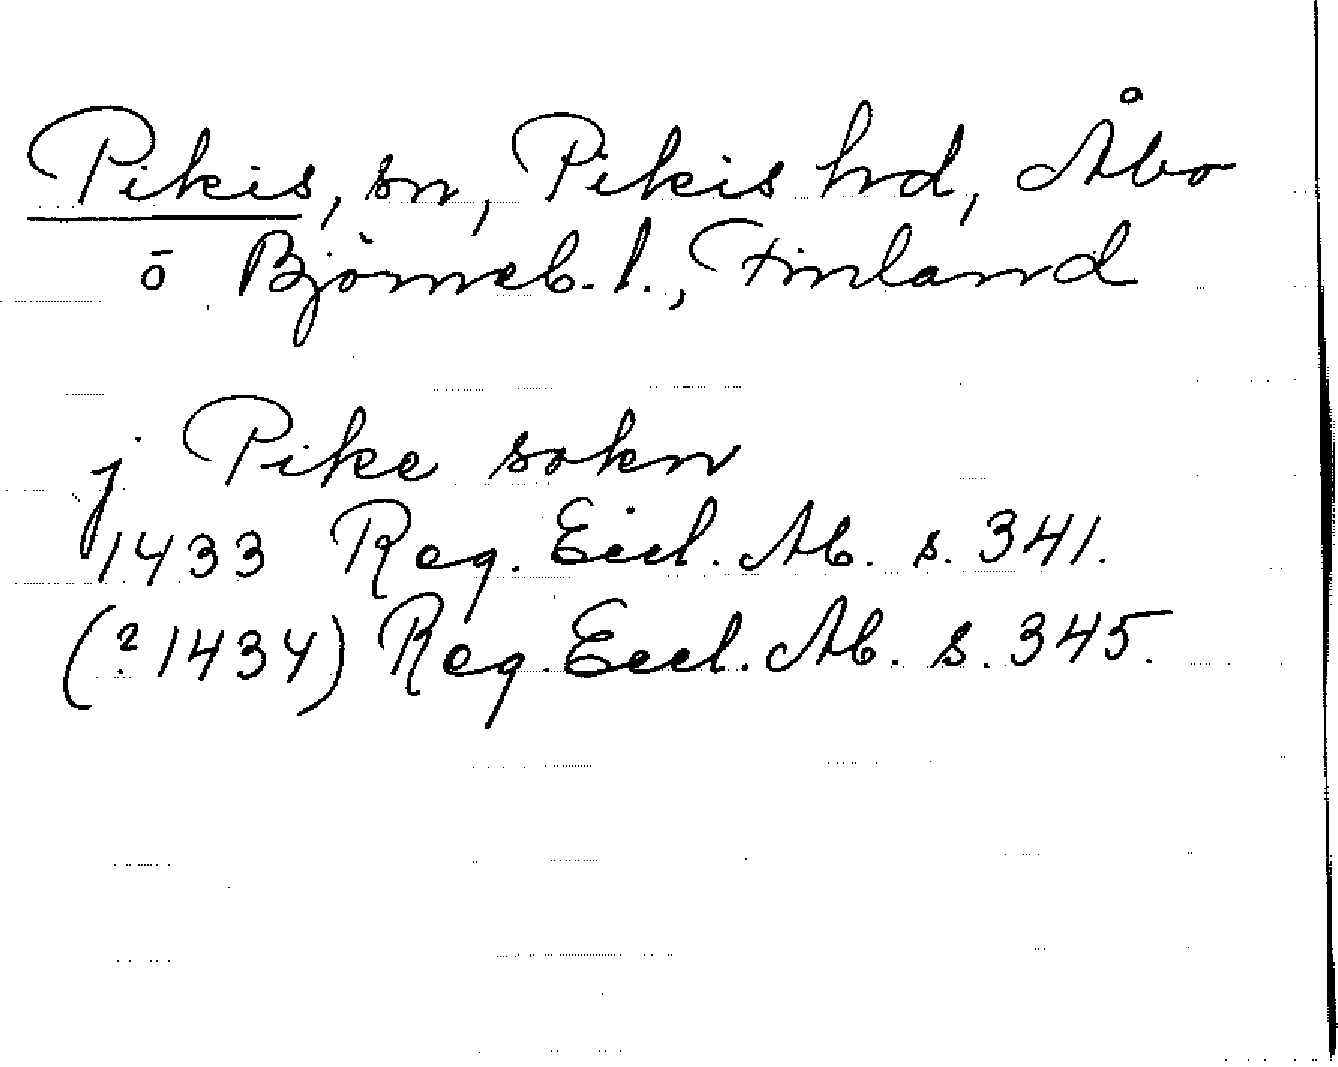 Pikis, sn, Pikis hrd, Åbo
o Björneb. l., Finland
j Pike sokn
1433 Reg. Eccl. Ab. s. 341.
(? 1434) Reg. Eccl. Ab. s. 345.